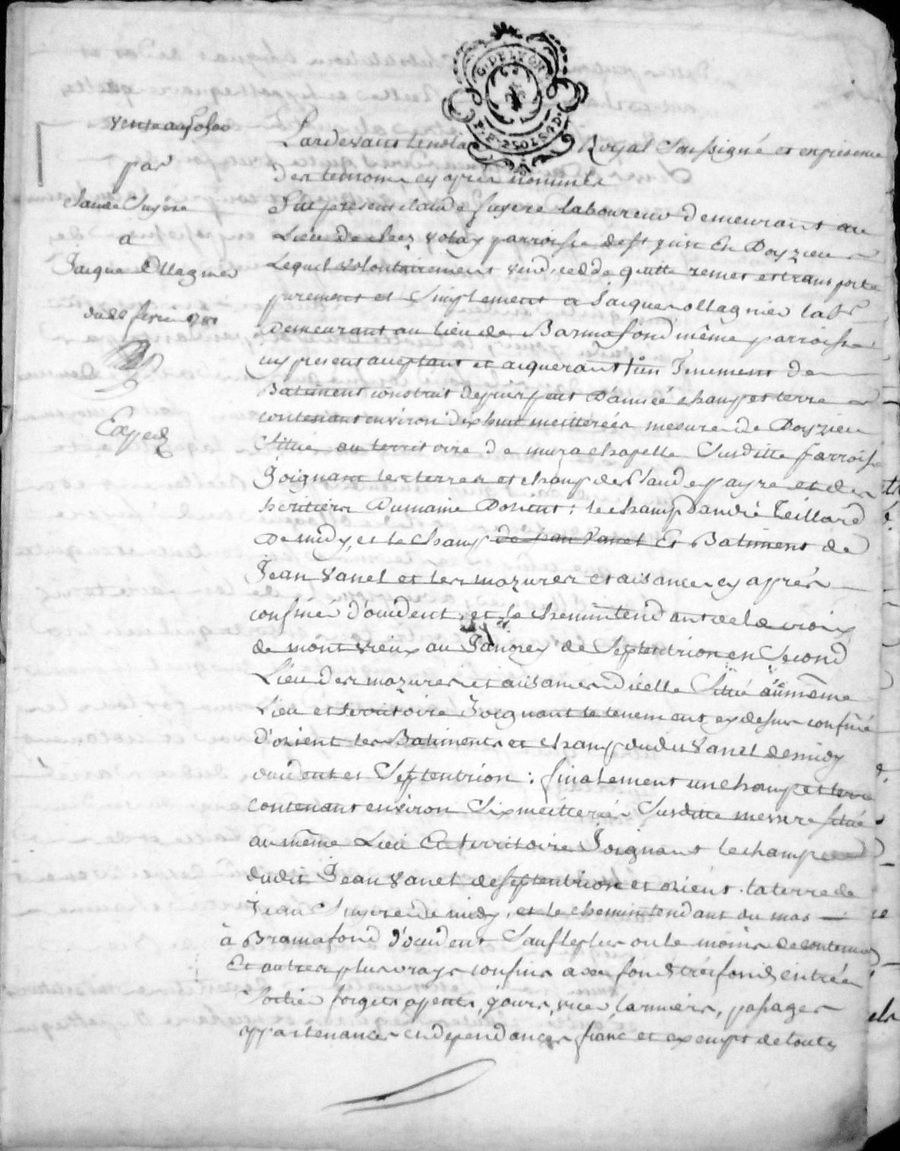 G. DE LYON
P.P. 2 SOLS 4 D.
vente
par
Claude Suyere
a
Jacque Ollagnier
du 28 fevrier
Exped
Pardevant le nota Royal Soussigné et en presence
des temoins cy apres nommés
Fut present Claude Suyere laboureur demeurant au
Lieu de chez volay parroisse de St Just En Doyzieu
Lequel volontairement vend cedde quitte remet et transporte
purement et Simplement a Jacque ollagnier labr
demeurant au lieu de Bramafond même parroisse
cy present acceptant et aquerant un Tenement de
Batiment construit de puis peut D'année champ et terre
contenant environ dix huit meitterées mesure de Doyzieu
Sittué au territoire de muza chapelle Susditte parroisse
Joignant les terres et champ de Claude payre et des
heritiers Dumaine D'orient; le champ d'andré Teillard
De midy, et le champ de Jean Vanel Et Batiment de
Jean Vanel et les mazures et aisances cy après
confiné d'occident, et le chemin tendant de la croix
de mont vieux au Janorey de Septentrion en Second
Lieu des mazures et aisances d'icelle Sittué au même
Lieu et territoire Joignant le tenement cy dessus confiné
d'orient les Batiments et champ dudit Vanel de midy
occident et Septentrion; finalement un champ et terre
contenant environ Six meitterée Susditte mesure sittué
au même Lieu Et territoire Joignant le champ
dudit Jean Vanel de septentrion et orient la terre de
Jean Suyere de midy, et le chemin tendant du mas
à Bramafond d'occident Sauf les plus ou le moins de contenu
Et autres plus vrays confins avec fonds tréfonds, entrée
Sortie forgets appents, jours, vues, larmiers, passages
appartenances et dependances franc et exempt de toute